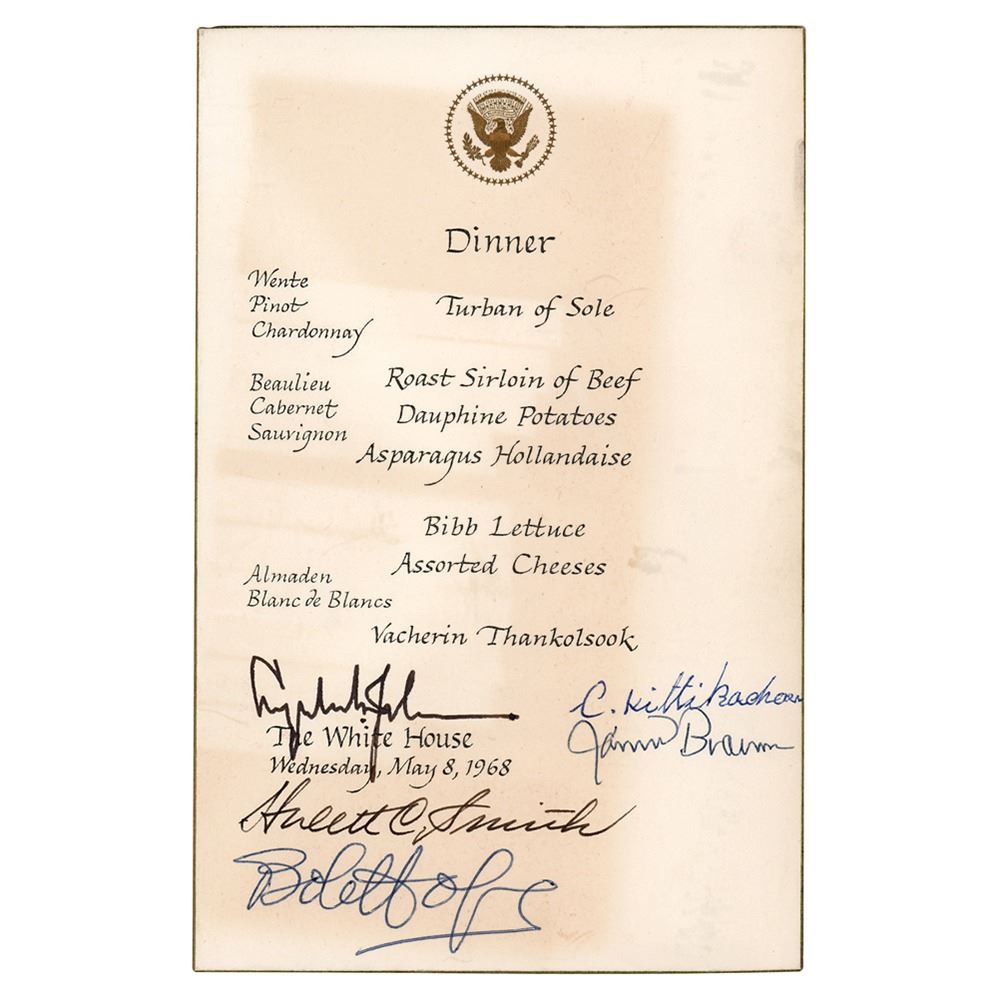 Dinner
Wente
Pinot
Chardonnay
Turban of Sole
Beaulieu
Cabernet
Sauvignon
Roast Sirloin of Beef
Dauphine Potatoes
Asparagus Hollandaise
Bibb Lettuce
Assorted Cheeses
Almaden
Blanc de Blancs
Vacherin Thankolsook
C. Kittikachorn
The White House
Wednesday, May 8, 1968
Hulett C. Smith